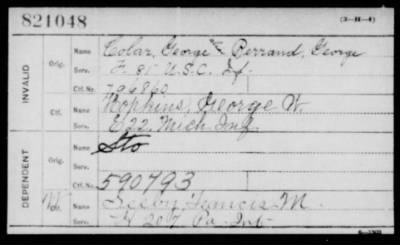 821048
(3—H—4)
INVALID
Orig.
Name Colar, George or Berrand, George
Serv. F. 81 U.S.C. Inf.
Ctf. No. 796860
Ctf.
Name Hopkins, George W.
Serv. E 22. Mich. Inf.
DEPENDENT
Orig.
Name Sto
Serv.
Ctf. No. 590793
Ctf.
Name Seeby Francis M.
Serv. 207 Pa. Inf.